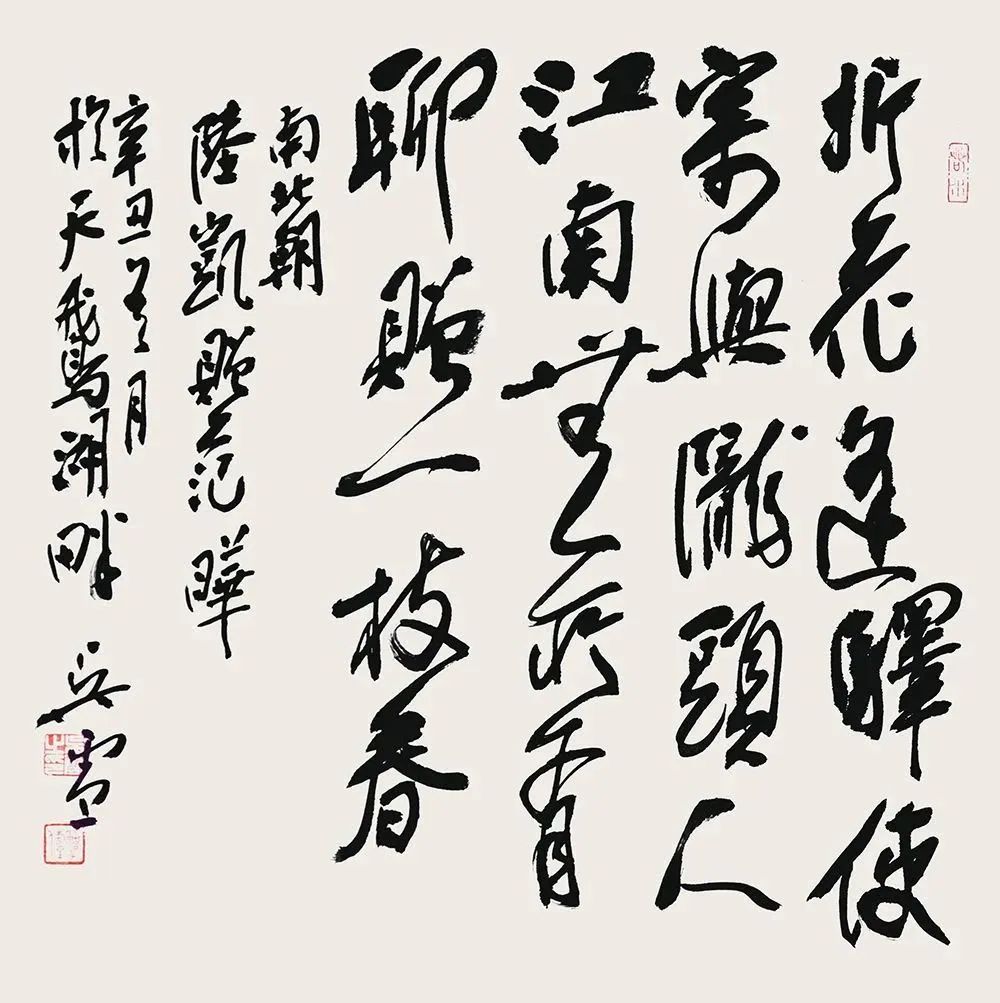 折花逢驛使
寄與隴頭人
江南無所有
聊贈一枝春
南北朝
陸凱贈范曄
辛丑月
於天鵝湖畔 吳雪